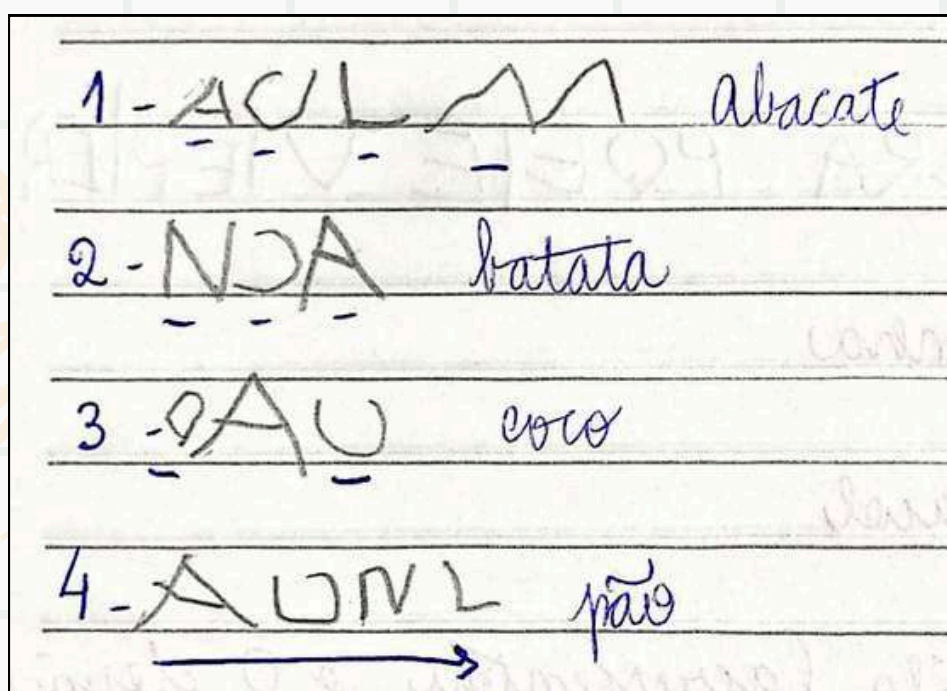 1 - ACLM abacate
2 - NOA batata
3 - OAU coco
4 - AUNL pão